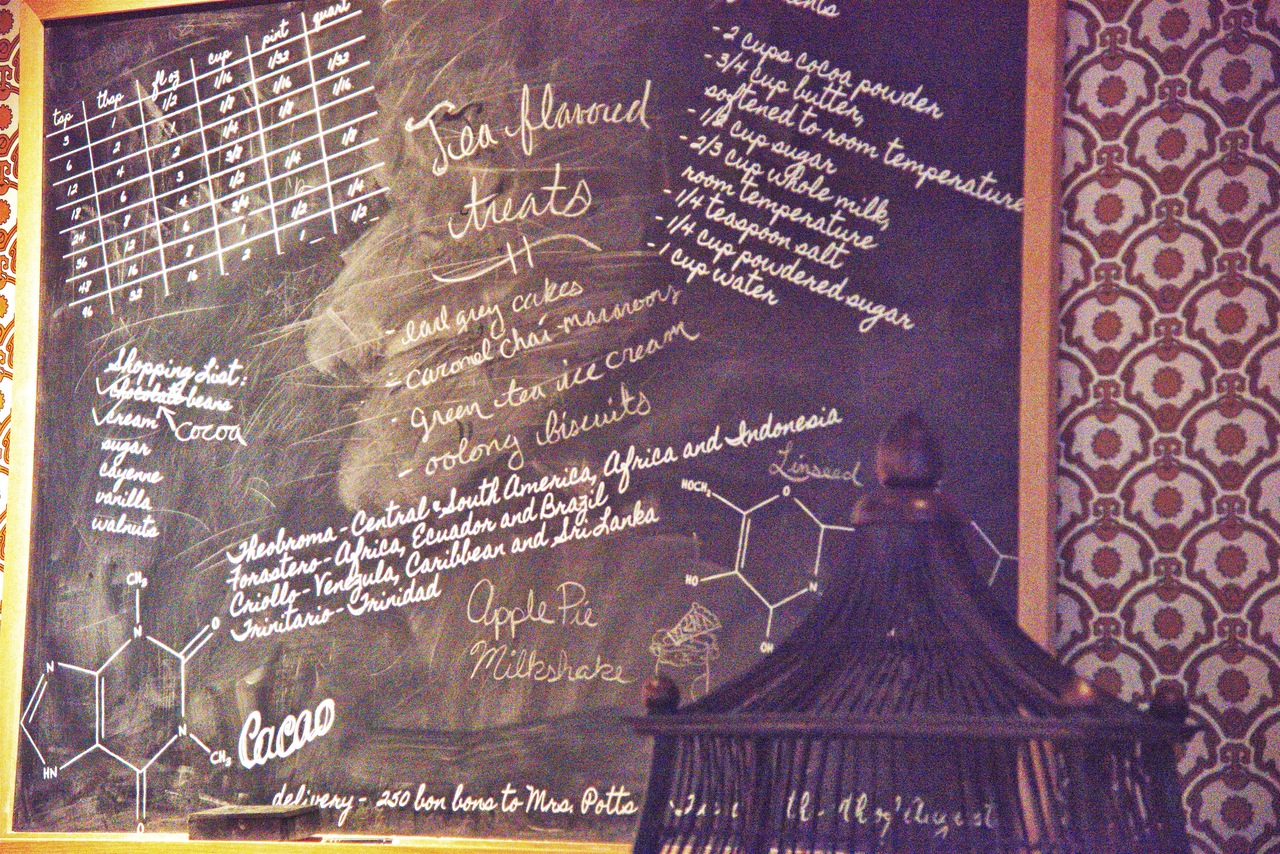 tsp tbsp fl oz cup pint quart
3 1 1/2 1/16 1/32
6 2 1/8 1/16 1/32
12 4 2 1/4 1/8 1/16
18 6 3 3/8
24 8 4 1/2 1/4 1/8
36 12 6 3/4
48 16 8 1 1/2 1/4
96 32 16 2 1 1/2
Tea flavored
treats
- earl grey cakes
- caramel chai-macaroons
- green tea ice cream
- oolong biscuits
- 2 cups cocoa powder
- 3/4 cup butter,
softened to room temperature
cup sugar
- 2/3 cup whole milk,
room temperature
- 1/4 teaspoon salt
- 1/4 cup powdered sugar
- 1 cup water
Shopping List:
chocolate beans
cream
cocoa
sugar
cayenne
vanilla
walnuts
Theobroma - Central & South America, Africa and Indonesia
Forastero - Africa, Ecuador and Brazil
Criollo - Venezula, Caribbean and Sri Lanka
Trinitario - Trinidad
Linseed
HOCH₂
O
HO
N
OH
Apple Pie
Milkshake
CH₃
N
O
N
N
HN
CH₃
O
Cacao
delivery - 250 bon bons to Mrs. Potts